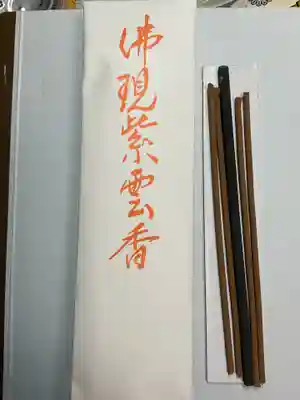 佛現紫雲香